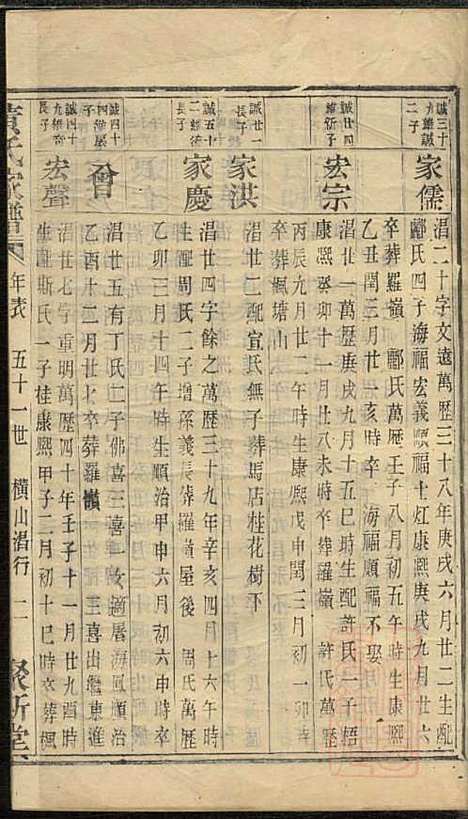 誠三十
九維誠
二子
家儒
淐二十字文遠萬歷三十八年庚戌六月廿二生配
酈氏四子海福宏義順福士灴康熙庚戌九月廿六
卒葬羅嶺 酈氏萬歷壬子八月初五午時生康熙
乙丑閏三月廿一亥時卒 海福順福不娶
誠廿四
維新子
宏宗
淐廿一萬歷庚戌九月十五巳時生配許氏一子梧
康熙癸卯十一月廿八未時卒葬羅嶺 許氏萬歷
丙辰九月廿二午時生康熙戊申閏三月初一卯時
卒葬楓塘山
誠廿二
長子
家洪
淐廿二配宣氏無子葬馬店桂花樹下
誠五十
二維
長子
家慶
淐廿四字餘之萬歷三十九年辛亥四月十六午時
生配周氏二子增孫義長葬羅嶺屋後 周氏萬歷
乙卯三月十四午時生順治甲申六月初六申時卒
誠四十
四
子
會
淐廿五有丁氏二子佛喜三喜一女嫡屠海鳳順治
乙酉十二月廿七卒葬羅嶺 三喜出繼東進
誠四十
九維
長子
宏聲
淐廿七字重明萬歷四十年壬子十一月廿九酉時
生配斯氏一子桂康熙甲子二月初十巳時卒葬楓
黃氏家譜 年表 五十一世 橫山淐行 二 聚所堂